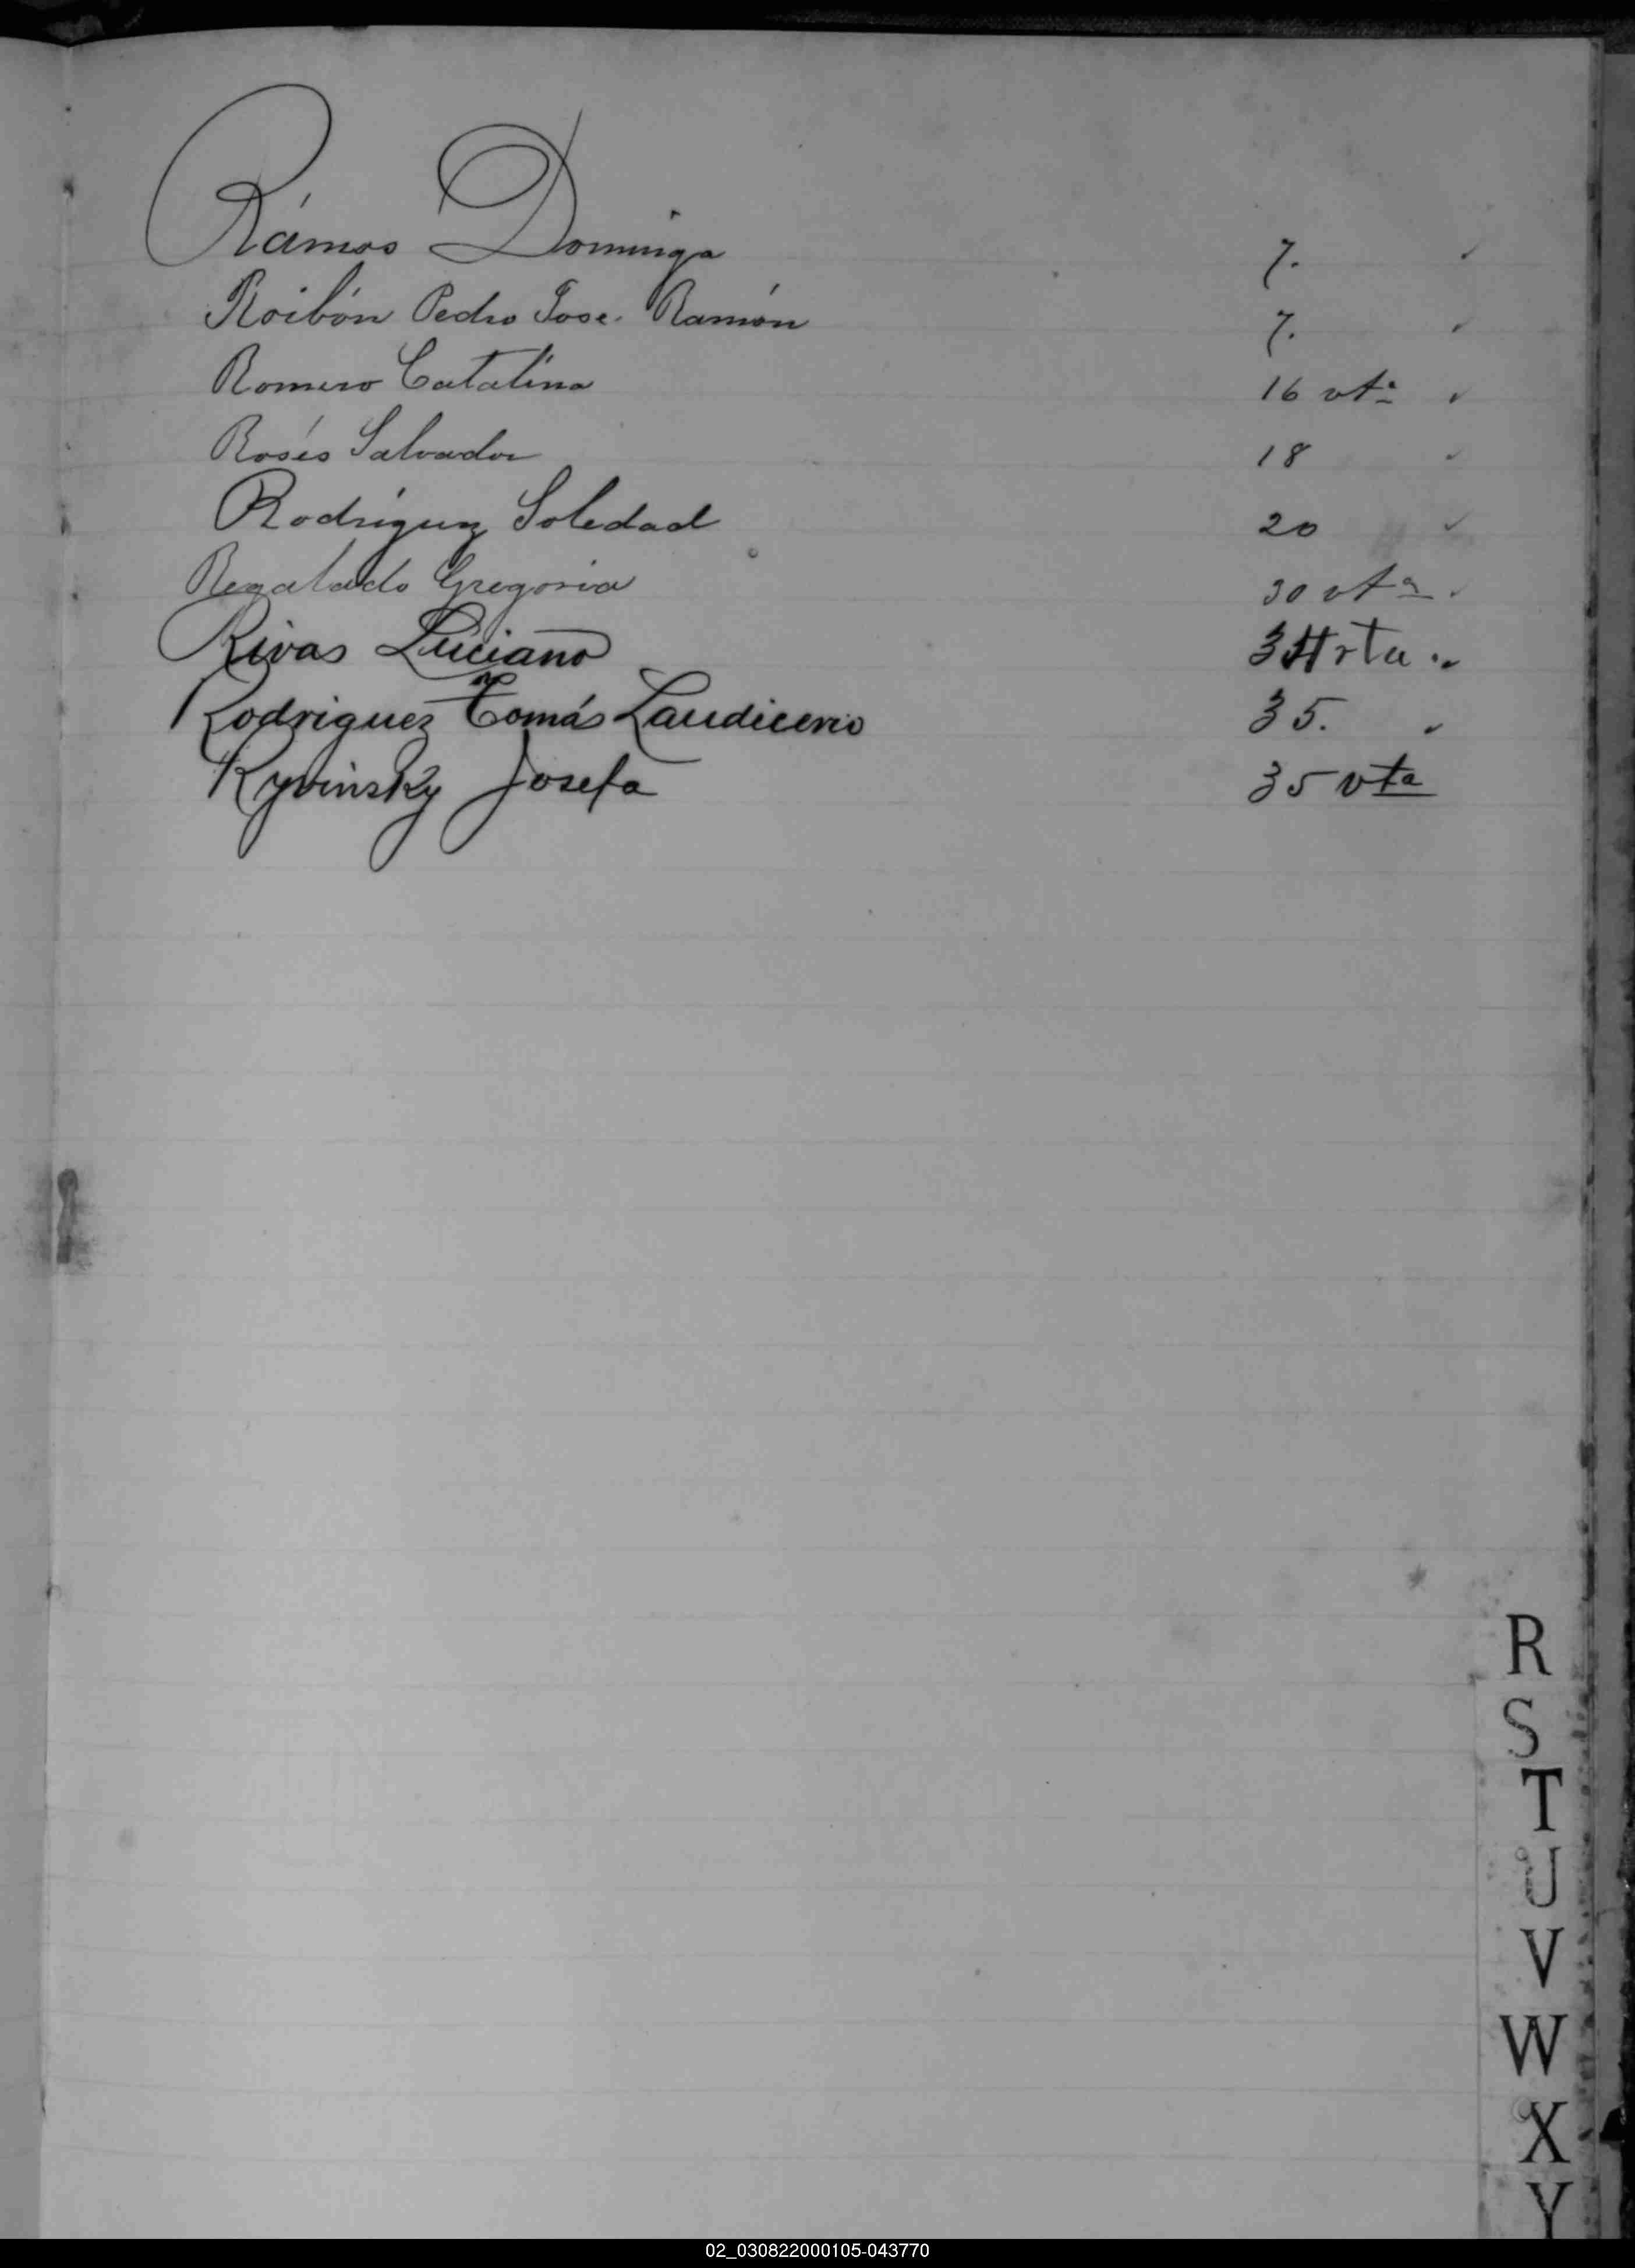 Rámos Dominga 7.
Roibón Pedro Jose Ramón 7.
Romero Catalina 16 vta
Rosés Salvador 18
Rodriguez Soledad 20
Regalado Gregoria 30 vta
Rivas Luciano 34 vta
Rodriguez Tomás Laudicerio 35.
Ryvinsky Josefa 35 vta
R
S
T
U
V
W
X
Y
02_030822000105-043770